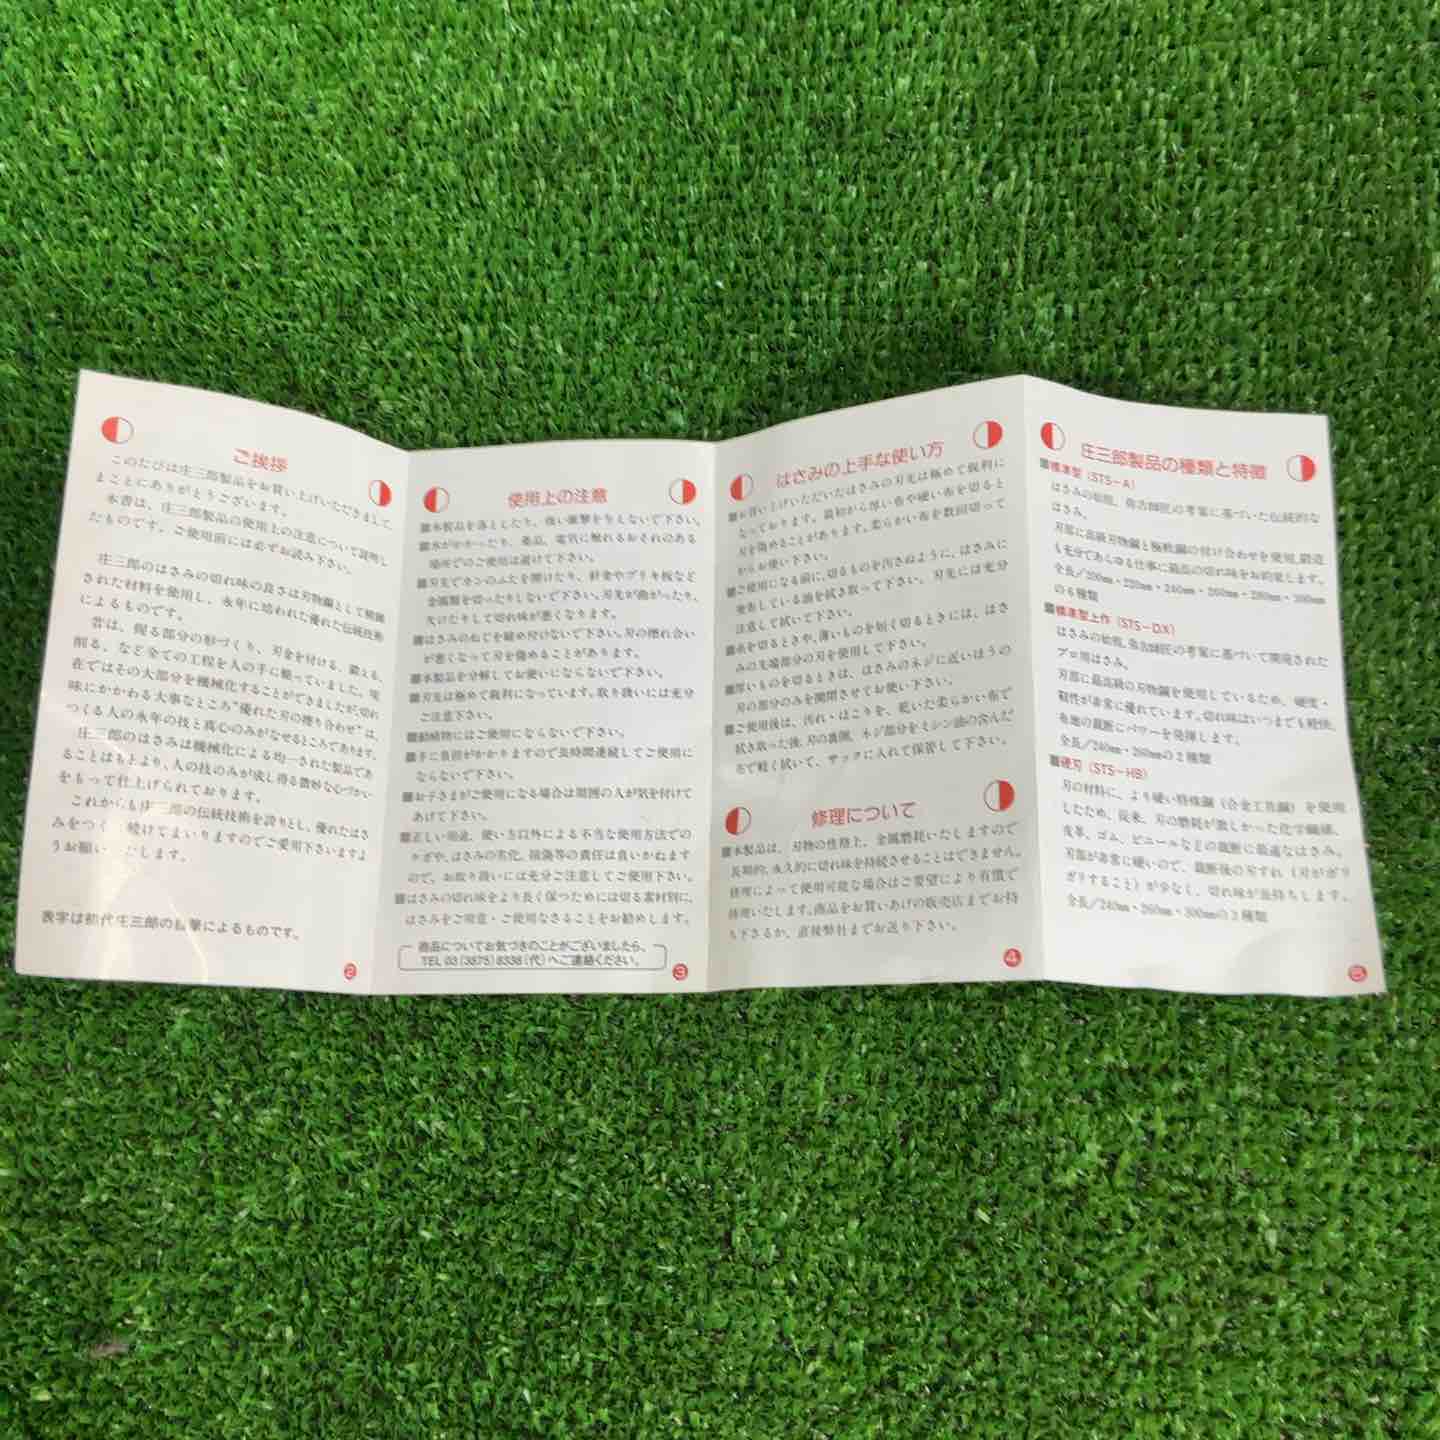 ご挨拶
このたびは庄三郎製品をお買い上げいただきまして、
まことにありがとうございます。
本書は、庄三郎製品の使用上の注意について説明し
たものです。ご使用前には必ずお読み下さい。
庄三郎のはさみの切れ味の良さは刃物鋼として精錬
された材料を使用し、永年に培われた優れた伝統技術
によるものです。
昔は、握る部分の形づくり、刃金を付ける、鍛える、
削る、など全ての工程を人の手に頼っていました。現
在ではその大部分を機械化することができましたが、切れ
味にかかわる大事なところ“優れた刃の擦り合わせ”は、
つくる人の永年の技と真心のみがなせるところであります。
庄三郎のはさみは機械化による均一された製品であ
ることはもとより、人の技のみが成し得る微妙な心づかい
をもって仕上げられております。
これからも庄三郎の伝統技術を誇りとし、優れたはさ
みをつく 続けてまいりますのでご愛用下さいますよ
うお願い たします。
表字は初代庄三郎の 筆によるものです。
2
使用上の注意
■本製品を落としたり、強い衝撃を与えないで下さい。
■水がかかったり、薬品、電気に触れるおそれのある
場所でのご使用は避けて下さい。
■刃先でカンのふたを開けたり、針金やブリキ板など
金属類を切ったりしないで下さい。刃先が曲がったり、
欠けたりして切れ味が悪くなります。
■はさみのねじを締め付けないで下さい。刃の擦れ合い
が悪くなって刃を傷めることがあります。
■本製品を分解してお使いにならないで下さい。
■刃先は極めて鋭利になっています。取り扱いには充分
ご注意下さい。
■動植物にはご使用にならないで下さい。
■手に負担がかかりますので長時間連続してご使用に
ならないで下さい。
■お子さまがご使用になる場合は周囲の人が気を付けて
あげて下さい。
■正しい用途、使い方以外による不当な使用方法での
ケガや、はさみの劣化、損傷等の責任は負いかねます
ので、お取り扱いには充分ご注意してご使用下さい。
■はさみの切れ味をより長く保つためには切る素材別に、
はさみをご用意・ご使用なさることをお勧めします。
商品についてお気づきのことがございましたら、
TEL 03(3875)8338(代)へご連絡ください。
3
はさみの上手な使い方
■お買い上げいただいたはさみの刃先は極めて鋭利に
なっております。最初から厚い布や硬い布を切ると
刃を傷めることがあります。柔らかい布を数回切って
からお使い下さい。
■ご使用になる前に、切るものを汚さぬように、はさみに
塗布している油を拭き取って下さい。刃先には充分
注意して拭いて下さい。
■糸を切るときや、薄いものを短く切るときには、はさ
みの先端部分の刃を使用して下さい。
■厚いものを切るときは、はさみのネジに近いほうの
刃の部分のみを開閉させてお使い下さい。
■ご使用後は、汚れ・ほこりを、乾いた柔らかい布で
拭き取った後、刃の裏側、ネジ部分をミシン油の含んだ
布で軽く拭いて、サックに入れて保管して下さい。
修理について
■本製品は、刃物の性格上、金属磨耗いたしますので
長期的、永久的に切れ味を持続させることはできません。
修理によって使用可能な場合はご要望により有償で
修理いたします。商品をお買いあげの販売店までお持
ち下さるか、直接弊社までお送り下さい。
4
庄三郎製品の種類と特徴
■標準型（STS－A）
はさみの始祖、弥吉師匠の考案に基づいた伝統的な
はさみ。
刃部に高級刃物鋼と極軟鋼の付け合わせを使用。鍛造
も充分であらゆる仕事に最高の切れ味をお約束します。
全長／200mm・220mm・240mm・260mm・280mm・300mm
の6種類
■標準型上作（STS－DX）
はさみの始祖、弥吉師匠の考案に基づいて開発された
プロ用はさみ。
刃部に最高級の刃物鋼を使用しているため、硬度・
靱性が非常に優れています。切れ味はいつまでも軽快、
布地の裁断にパワーを発揮します。
全長／240mm・260mmの2種類
■硬刃（STS－HB）
刃の材料に、より硬い特殊鋼（合金工具鋼）を使用
したため、従来、刃の磨耗が激しかった化学繊維、
皮革、ゴム、ビニールなどの裁断に最適なはさみ。
刃部が非常に硬いので、裁断後の刃ずれ（刃がガリ
ガリすること）が少なく、切れ味が長持ちします。
全長／240mm・260mm・300mmの3種類
5